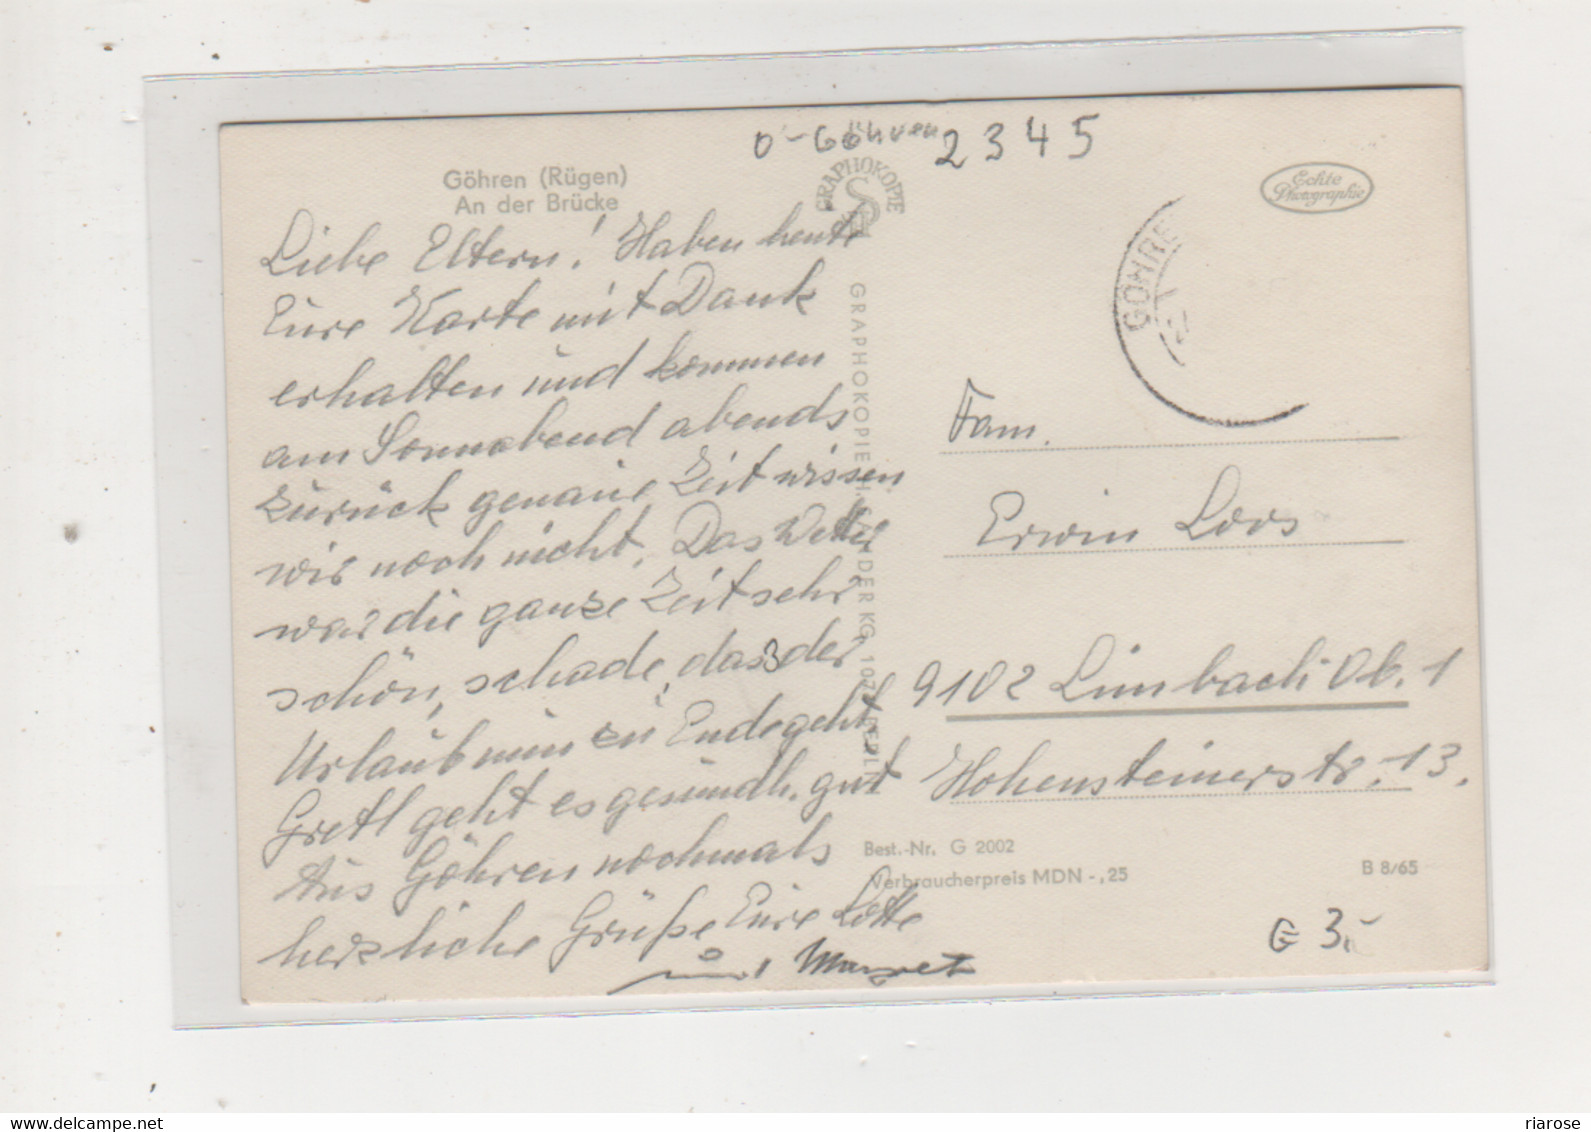 O-Göhren 2345
Göhren (Rügen)
An der Brücke
GRAPHOKOPIE
Echte
Photographie
GÖHRE
Liebe Eltern! Haben heute
Eure Karte mit Dank
erhalten und kommen
am Sonnabend abends
zurück genaue Zeit wissen
wir noch nicht. Das Wetter
war die ganze Zeit sehr
schön, schade, dass der
Urlaub nun zu Ende geht
Gretl geht es gesundh. gut
Aus Göhren nochmals
herzliche Grüße Eure Lotte
und Margret
GRAPHOKOPIE H. SANDER KG, 107 BERLIN
Fam.
Erwin Loos
9102 Limbach-Ob. 1
Hohensteinerstr. 13.
Best.-Nr. G 2002
Verbraucherpreis MDN -,25
B 8/65
G 3.-
delcampe.net
riarose